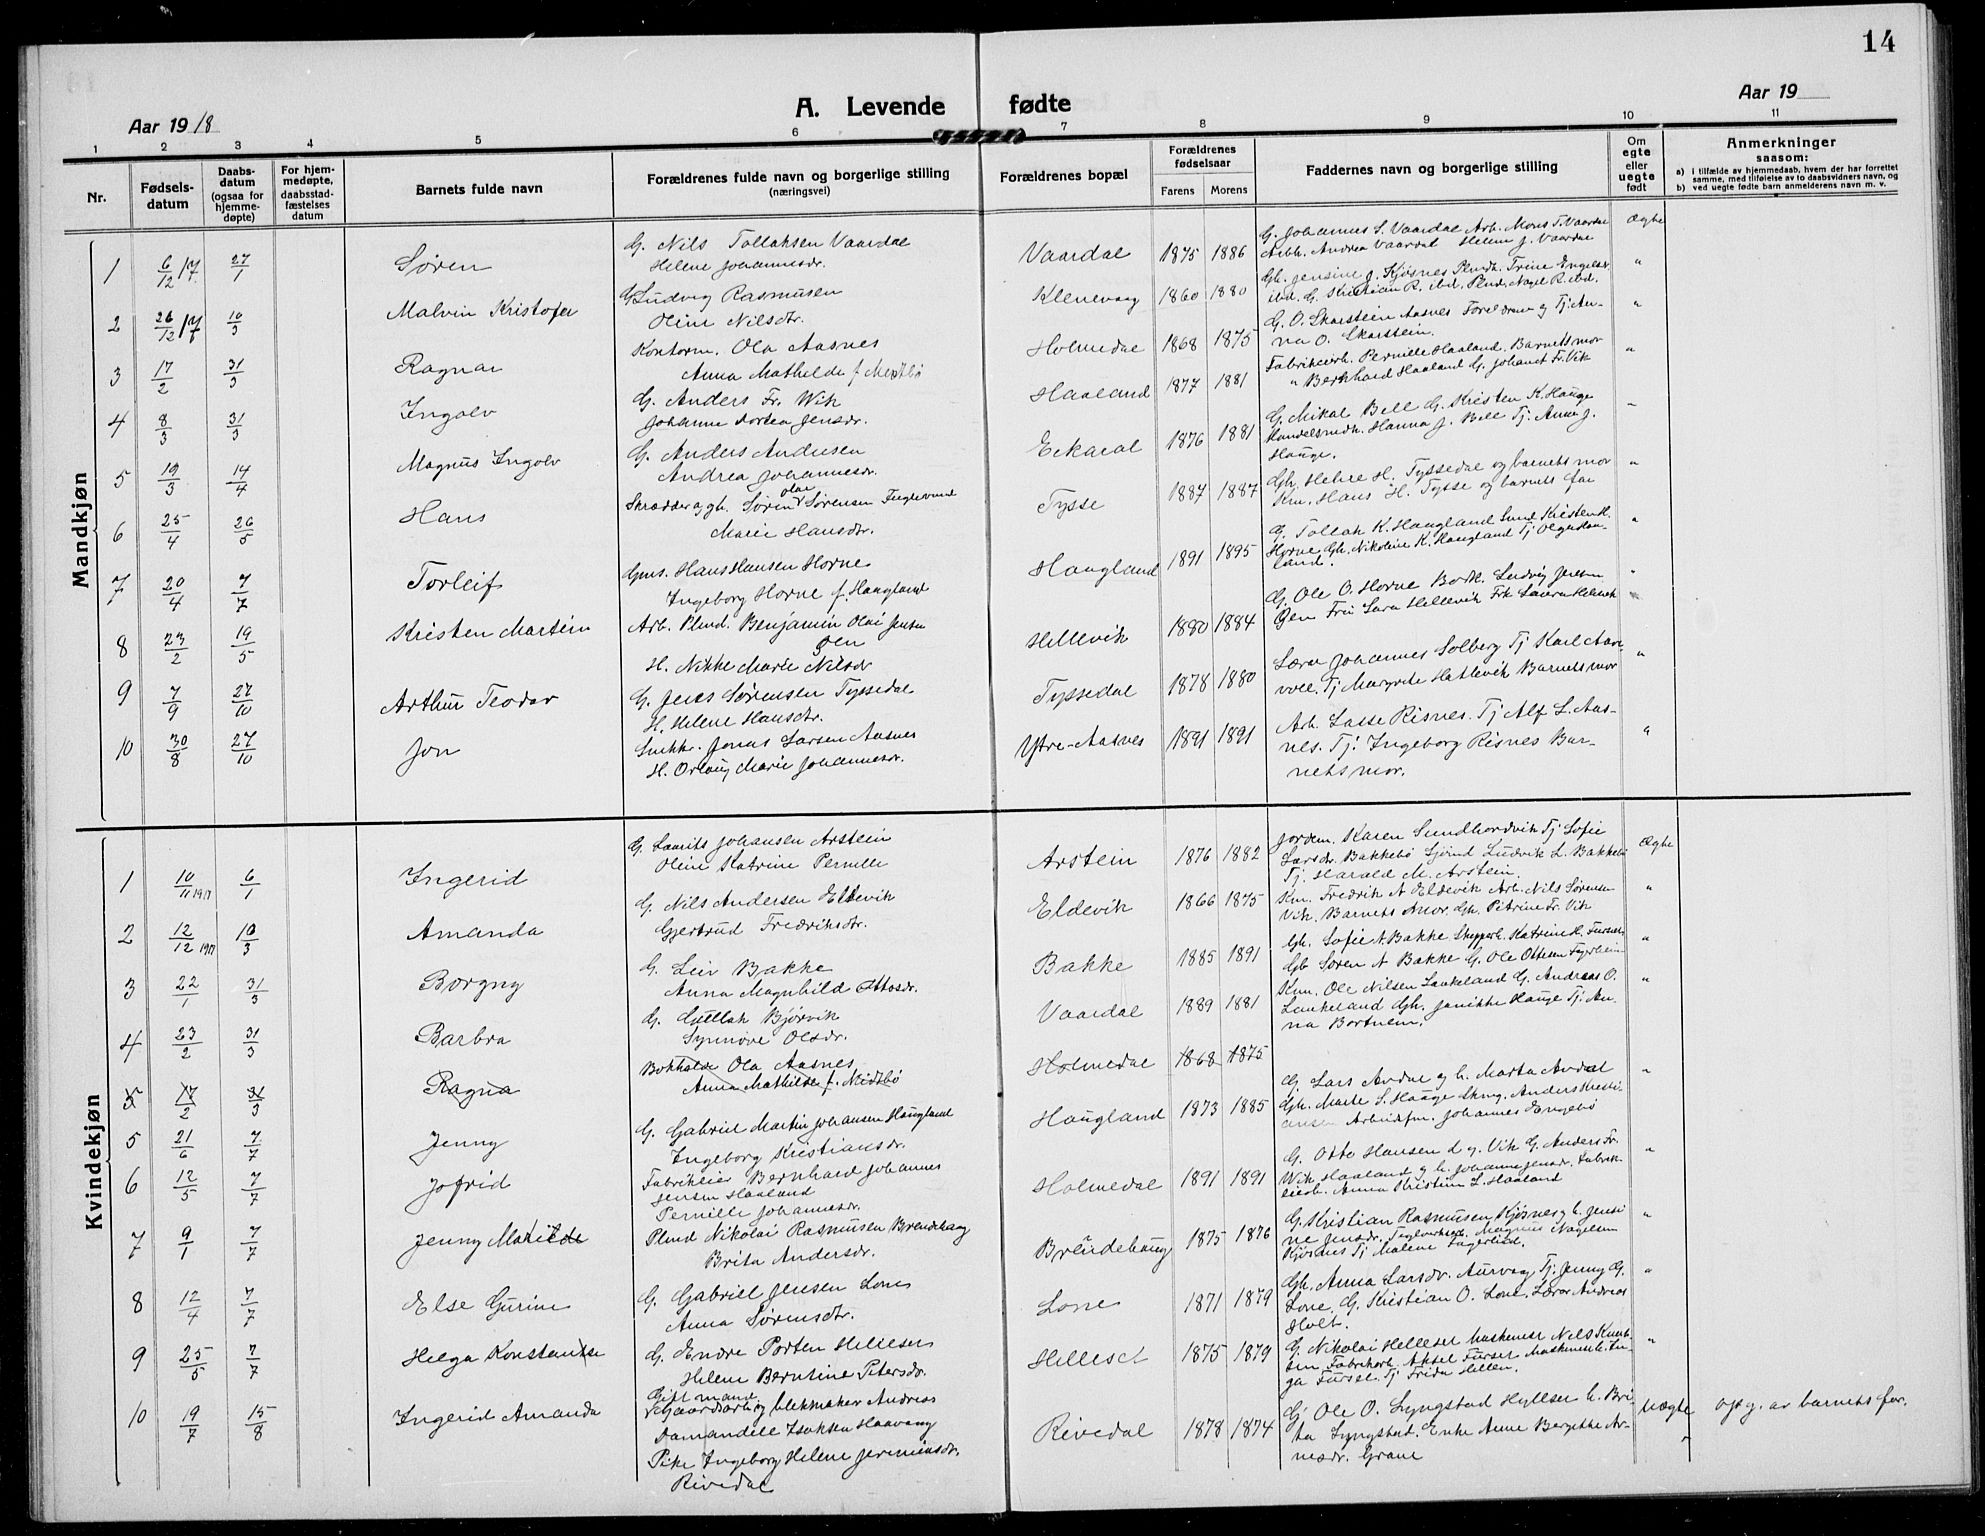 14
Aar 1918
A. Levende fødte
Aar 19
1 2 3 4 5 6 7 8 9 10 11
Nr.
Fødsels-datum
Daabs-datum (ogsaa for hjemme-døpte)
For hjem-medøpte, daabsstad-fæstelses datum
Barnets fulde navn
Forældrenes fulde navn og borgerlige stilling (næringsvei)
Forældrenes bopæl
Forældrenes fødselsaar
Farens Morens
Faddernes navn og borgerlige stilling
Om egte eller uegte født
Anmerkninger
saasom:
a) i tilfælde av hjemmedaab, hvem der har forrettet samme, med tilføielse av to daabsvidners navn, og
b) ved uegte fødte barn anmelderens navn m. v.
Mandkjøn
1 6/12 17 27/1 Søren G. Nils Tollaksen Vaardal Vaardal 1875 1886 G. Johannes S. Vaardal Arb. Mons T. Vaardal Ægte
Helene Johannesdr. Arbh. Andrea Vaardal Helene J. Vaardal
2 26/12 17 10/3 Malvin Kristofer G. Ludvig Rasmusen Klenevaag 1860 1880 Gh. Jensine J. Kjøsnes Plmdh. Trine Engelsr. "
Oline Nilsdtr. ibd. G. Kristian R. ibd. Plmd. Nagel R. ibd.
3 17/2 31/3 Ragnar Kontorm. Ola Aasnes Holmedal 1868 1875 G. O. Skarstein Aasnes Foreldrene og Tj. An- "
Anna Mathilde f. na O. Skarstein.
4 8/3 31/3 Ingolv G. Anders Fr. Wik Haaland 1877 1881 Fabrikeierh. Pernille Haaland. Barnets mor "
Johanne Dortea Jensdr. " Bernhard Haaland G. Johanes Fr. Vik
5 19/3 14/4 Magnus Ingolv G. Anders Andersen 1876 1881 G. Mikal Bell G. Kristen K. Hauge
Andrea Johannesdr. Handelsmdh. Hanna J. Bell Tj. Anna J.
Hauge.
6 25/4 26/5 Hans Skrædder og gh. Søren Olai Sørensen Tysse 1887 1887 Gh. H. Tyssedal og barnets mor "
Marie Hansdr. Km. Hans H. Tysse og barnets far
7 20/4 7/7 Torleif Gms. Hans Hansen Horne Haugland 1891 1895 G. Tollak K. Haugland Kristen H. "
Ingeborg Horne f. Haugland Horne Gh. Nikoline K. Haugland Tj Olga Hau-
land.
8 23/2 19/5 Kristen Martin Arb. Plmd. Benjamin Olai Jensen Hellevik 1880 1884 G. Ole O. Horne Ludvig Jensen "
Øen Øen Fru Lara Hellevik Frk Laura Hellevik
H. Nikke Marie Nilsdr
9 7/9 27/10 Arthur Teodor G. Jens Sørensen Tyssedal Tyssedal 1878 1880 Lærer Johannes Solberg Tj Karl "
H. Helene Hansdtr. Tj Margrete Hatlevik Barnets mor
10 30/8 27/10 Jon Snekk. Jonas Larsen Aasnes Ytre-Aasnes 1891 1891 Arb. Lasse Risnes. Tj Alf L. Aas- "
H. Marie Johannesdr. nes. Tj. Ingeborg Risnes Bar-
nets mor.
Kvindekjøn
1 10/11 1917 6/1 Ingerid G. Laurits Johansen Arstein Arstein 1876 1882 Jordem. Karen Sundhordvik Tj Sofie Ægte
Oline Katrine Pernille Larsdr. Bakkebø Ludvik L. Bakkebø
Tj. Harald M. Arstein.
2 12/12 1917 10/3 Amanda G. Nils Andersen Eldevik Eldevik 1866 1875 Km. Fredrik A Eldevik Arb. Nils Sørensen "
Gjertrud Fredriksdtr. Vik. Barnets Mor. Gh. Petrine Fr. Vik
3 22/1 31/3 Borgny G. Leiv Bakke Bakke 1885 1891 Gh. Sofie N. Bakke Skipperh. Katrine H. "
Anna Magnhild Ottosdr. Gb Søren N Bakke G. Ole Ottesen
4 23/2 31/3 Barbra G. Gullak Bjørvik Vaardal 1889 1881 Km. Ole Nilsen Laukeland G. Andreas O. "
Synnøve Olsdr. Laukeland Gh. Janikke Hauge Tj. An-
na Bortnem.
5 17/2 31/3 Ragna Bokholder Ola Aasnes Holmedal 1868 1875
Anna Mathilde f. Midtbø
5 21/6 7/7 Jenny G. Gabriel Martin Johansen Haugland Haugland 1873 1885 G. Lars Andal og h. Marta Andal "
Ingeborg Kristiansdr. Gh. Marte S. Hauge Anders Kristi-
ansen Arbeidfm. Johannes Engebø
6 12/5 7/7 Jofrid Fabrikeier Bernhard Johannes Holmedal 1891 1891 G. Otto Hansen d. y. Vik G. Anders Fr. "
Jensen Haaland Wik Haaland og h. Johanne Jensdr. Fabrik-
Pernille Johannesdr. eierh. Anna Kristine L. Haaland
7 9/1 7/7 Jenny Matilde Plmd Nikolai Rasmusen Breidehaug Breidehaug 1875 1876 G. Kristian Rasmusen Kjøsnes og h. Jensi- "
Brita Andersdr. ne Jensdr. Magnus Nagelsen
Kjøsnes Tj Malene Fagerlid.
8 12/4 7/7 Else Gurine G. Gabriel Jensen Lone Lone 1871 1879 Gh. Anna Larsdr. Aurvaag Tj. Jenny G. "
Anna Sørensdtr. Lone. G. Kristian O. Lone. Lærer Andreas
Holt.
9 25/5 7/7 Helga Konstanse G. Endre Porten Helleset Helleset 1875 1879 G. Nikolai Helleset Maskinmest Nils "
Helene Berntine Petersdr. Fabrikarb. Aksel Furset Maskinmesth. In-
ga Furset. Tj Frida Hellen.
10 19/7 15/8 Ingerid Amanda Gift mand Rivedal 1878 1874 G. Ole O. Lyngstad Hyllset h. Bri- Uægte opg. av barnets far.
Gaardarb. og blekmaker Andreas ta Lyngstad. Enke Anne Bergitte Ar-
Damandell Isaksen Haavang nesdr. Grane
Pike Ingeborg Helene Jeremiasdr.
Rivedal